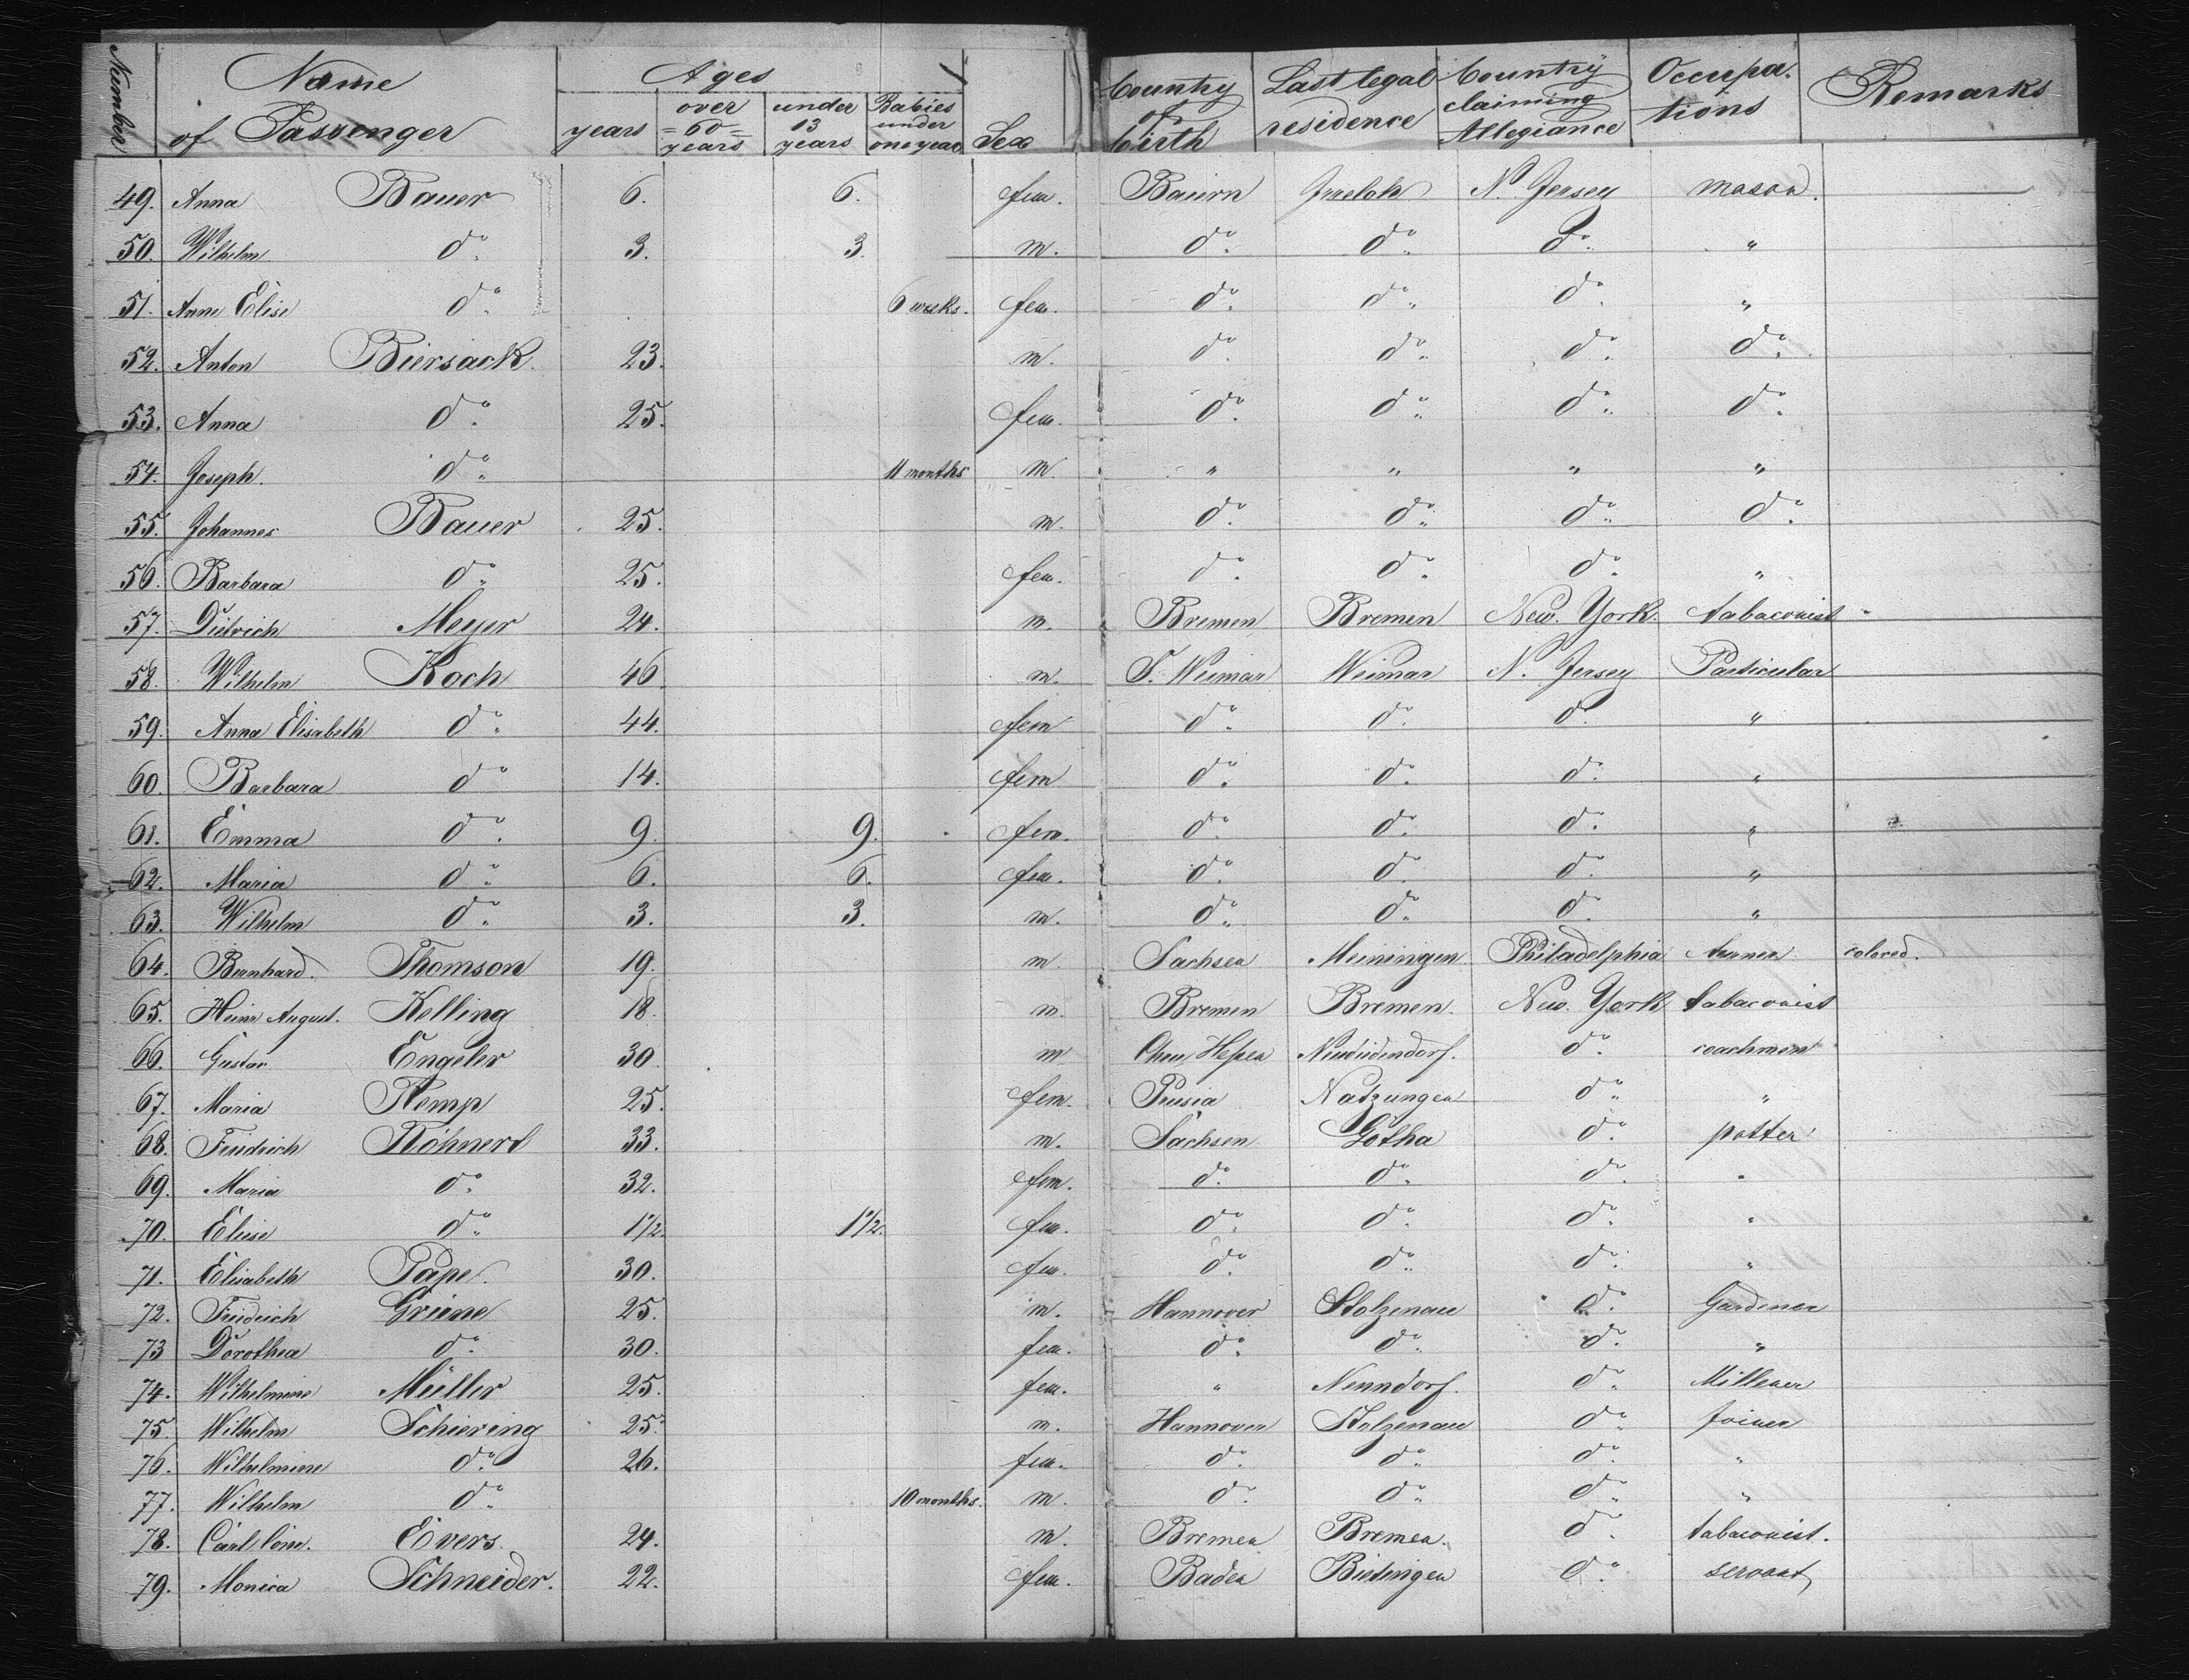 Number Name of Passenger Ages years over =60= years under 13 years Babies under one year Sex Country of birth Last legal residence Country claiming Allegiance Occupa-tions Remarks
49. Anna Bauer 6. 6. fem. Bairn N. Jersey mason.
50. Wilhelm do. 3. 3. m. do. do. do. "
51. Anne Elise do. 6 weeks. fem. do. do. do. "
52. Anton Biersack. 23. m. do. do. do. do.
53. Anna do. 25. fem. do. do. do. do.
54. Joseph. do. 11 months m. " " " "
55. Johannes Bauer 25. m. do. do. do. do.
56. Barbara do. 25. fem. do. do. do. "
57. Dietrich Meyer 24. m. Bremen Bremen New. York. tabaconist
58. Wilhelm Koch 46 m. S. Weimar Weimar N. Jersey Particular
59. Anna Elisabeth do. 44. fem do. do. do. "
60. Barbara do 14. fem do. do. do. "
61. Emma do. 9. 9. fem. do. do. do. "
62. Maria do. 6. 6. fem. do. do. do. "
63. Wilhelm do. 3. 3. m. do. do. do. "
64. Bernhard. Thomson 19. m. Sachsen Meiningen Philadelphia colored.
65. Heinr August. Kelling 18. m. Bremen Bremen. New. York tabaconist
66. Gustav Engeler 30 m Chur Hessen do. coachmen
67. Maria Kemp 25. fem. Prusia Natzungen do. "
68. Friedrich Röhnert 33. m. Sachsen Gotha do. potter
69. Maria do. 32. fem. do. do. do. "
70. Elise do. 1 1/2. 1 1/2. fem. do. do. do. "
71. Elisabeth Pape. 30. fem. do. do. do. "
72. Friedrich Grüne 25. m. Hannover Stolzenau do. Gardener
73 Dorothea do. 30. fem. do. do. do. "
74. Wilhelmine Müller 25. fem. " Nenndorf. do. Millener
75. Wilhelm Schiering 25. m. Hannover Stolzenau do. Joiner
76. Wilhelmine do. 26. fem. do. do. do. "
77. Wilhelm do. 10 months. m. do. do. do. "
78. Carl Conr. Evers. 24. m. Bremen Bremen. do. tabaconist.
79. Monica Schneider. 22. fem. Baden Bietingen do. servant